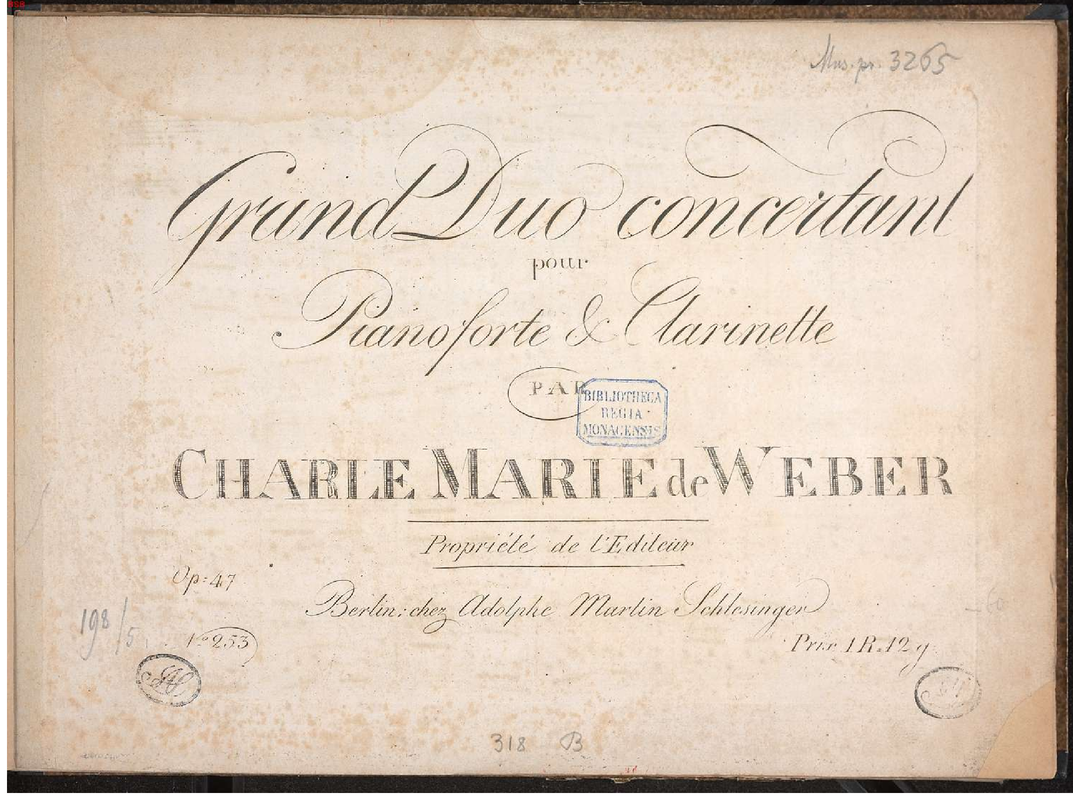 Mus. pr. 3265
Grand Duo concertant
pour
Pianoforte & Clarinette
PAR
BIBLIOTHECA
REGIA
MONACENSIS
CHARLE MARIE de WEBER
Propriété de l'Editeur
Op: 47
Berlin: chez Adolphe Martin Schlesinger
198/5
No 253
Prix 1 R. 12 g.
318 B